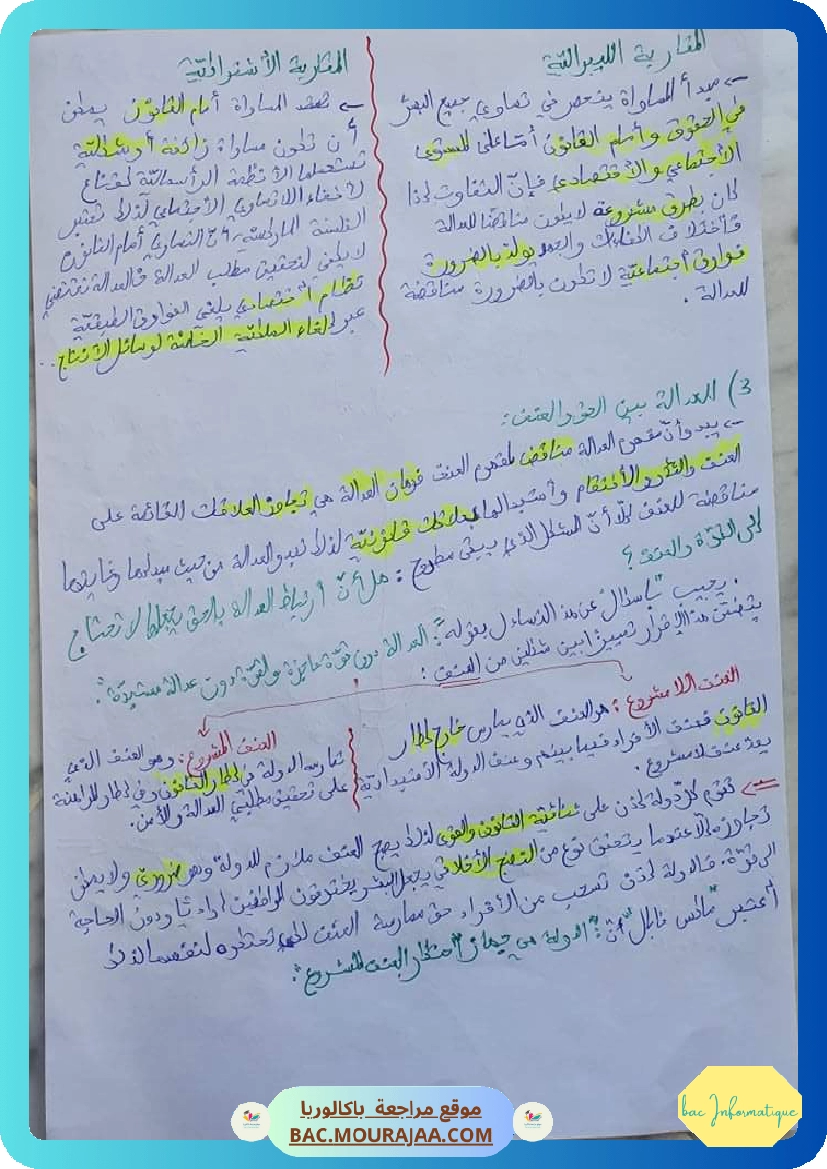 المقاربة الليبرالية
← مبدأ المساواة ينحصر في تساوي جميع البشر
في الحقوق وأمام القانون أمّا على المستوى
الاجتماعي والاقتصادي فإنّ التفاوت إذا
كان بطرق مشروعة لا يكون مناقضا للعدالة
فاختلاف الكفاءات والجهد يولد بالضرورة
فوارق اجتماعيّة لا تكون بالضرورة مناقضة
للعدالة .
المقاربة الاشتراكيّة
← تعتقد المساواة أمام القانون يمكن
أن تكون مساواة زائفة أو شكليّة
تستعملها الأنظمة الرأسماليّة كقناع
لاخفاء اللاتساوي الاجتماعي لذلك تعتبر
الفلسفة الماركسيّة أنّ التساوي أمام القانون
لا يكفي لتحقيق مطلب العدالة فالعدالة تقتضي
نظام اقتصادي يلغي الفوارق الطبقيّة
عبر إلغاء الملكيّة الخاصّة لوسائل الانتاج..
3) العدالة بين الحق والعنف:
← يبدو أنّ مفهوم العدالة مناقض لمفهوم العنف فرهان العدالة هي تجاوز العلاقات القائمة على
العنف والثأر والانتقام واستبدالها بعلاقات قانونيّة لذلك تبدو العدالة من حيث مبدئها وغاياتها
مناقضة للعنف إلّا أنّ المشكل الذي يبقى مطروح : هل أنّ ارتباط العدالة بالحق يجعلها لا تحتاج
إلى القوّة والعنف ؟
. يجيب "باسكال" عن هذا التساؤل بقوله: "العدالة دون قوّة عاجزة والقوّة دون عدالة مستبدّة".
يتضمّن هذا الإقرار تمييزا بين شكلين من العنف :
العنف اللامشروع : هو العنف الذي يمارس خارج إطار
القانون كعنف الأفراد فيما بينهم وعنف الدولة الاستبداديّة
يعدّ عنف لامشروع .
العنف المشروع: وهو العنف الذي
تمارسه الدولة في إطار القانون وفي إطار المراهنة
على تحقيق مطلبيّ العدالة والأمن.
⇐ تقوم كلّ دولة إذن على ثنائيّة القانون والقوّة لذلك يصبح العنف ملازم للدولة وهو ضروري ولا يمكن
تجاوزه إلّا عندما يتحقق نوع من النضج الأخلاقي يجعل البشر يحترمون القوانين إراديّا ودون الحاجة
الى قوّة. فالدولة إذن تسحب من الأفراد حق ممارسة العنف لكي تحتكره لنفسها لذلك
اعتبر "ماكس فايبر" أنّ : "الدولة هي جهاز احتكار العنف المشروع".
موقع مراجعة باكالوريا
BAC.MOURAJAA.COM
bac Informatique